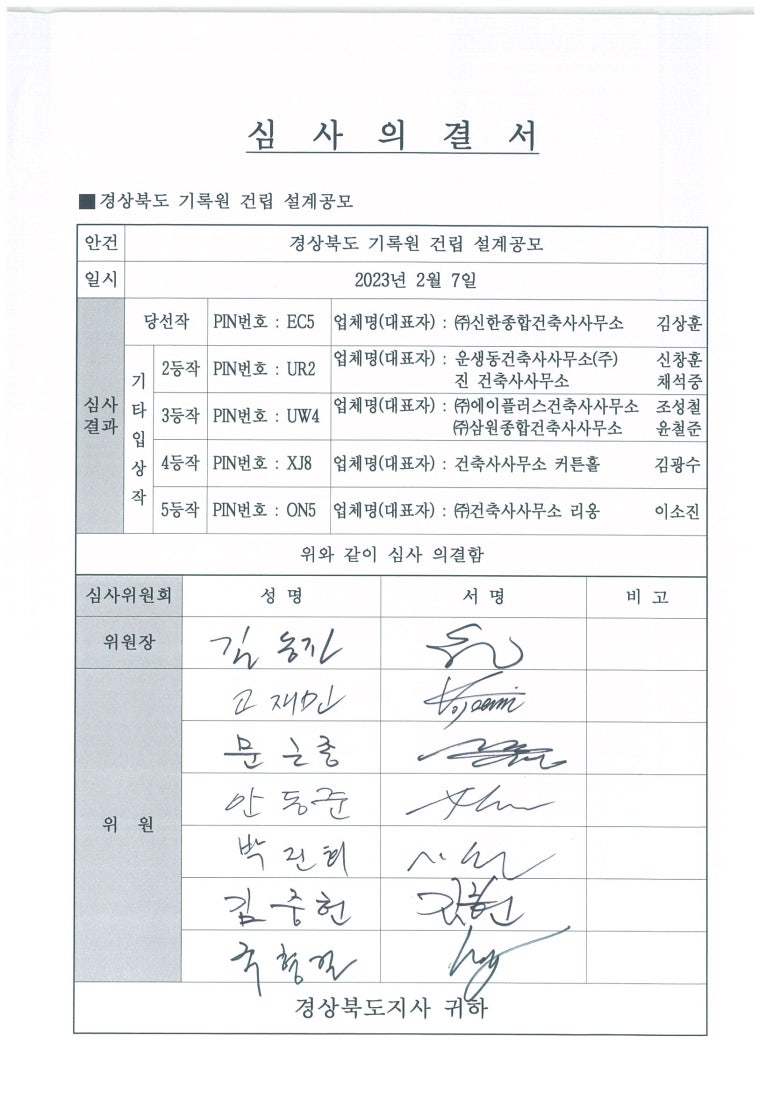 심 사 의 결 서
■경상북도 기록원 건립 설계공모
안건 경상북도 기록원 건립 설계공모
일시 2023년 2월 7일
심사결과
당선작 PIN번호 : EC5 업체명(대표자) : ㈜신한종합건축사사무소 김상훈
기타입상작
2등작 PIN번호 : UR2 업체명(대표자) : 운생동건축사사무소(주) 신창훈
진 건축사사무소 채석중
3등작 PIN번호 : UW4 업체명(대표자) : ㈜에이플러스건축사사무소 조성철
㈜삼원종합건축사사무소 윤철준
4등작 PIN번호 : XJ8 업체명(대표자) : 건축사사무소 커튼홀 김광수
5등작 PIN번호 : ON5 업체명(대표자) : ㈜건축사사무소 리웅 이소진
위와 같이 심사 의결함
심사위원회 성 명 서 명 비 고
위원장 김 동진
위 원
고 재민
문
안 동준
박 진희
김 중헌
국 형걸
경상북도지사 귀하